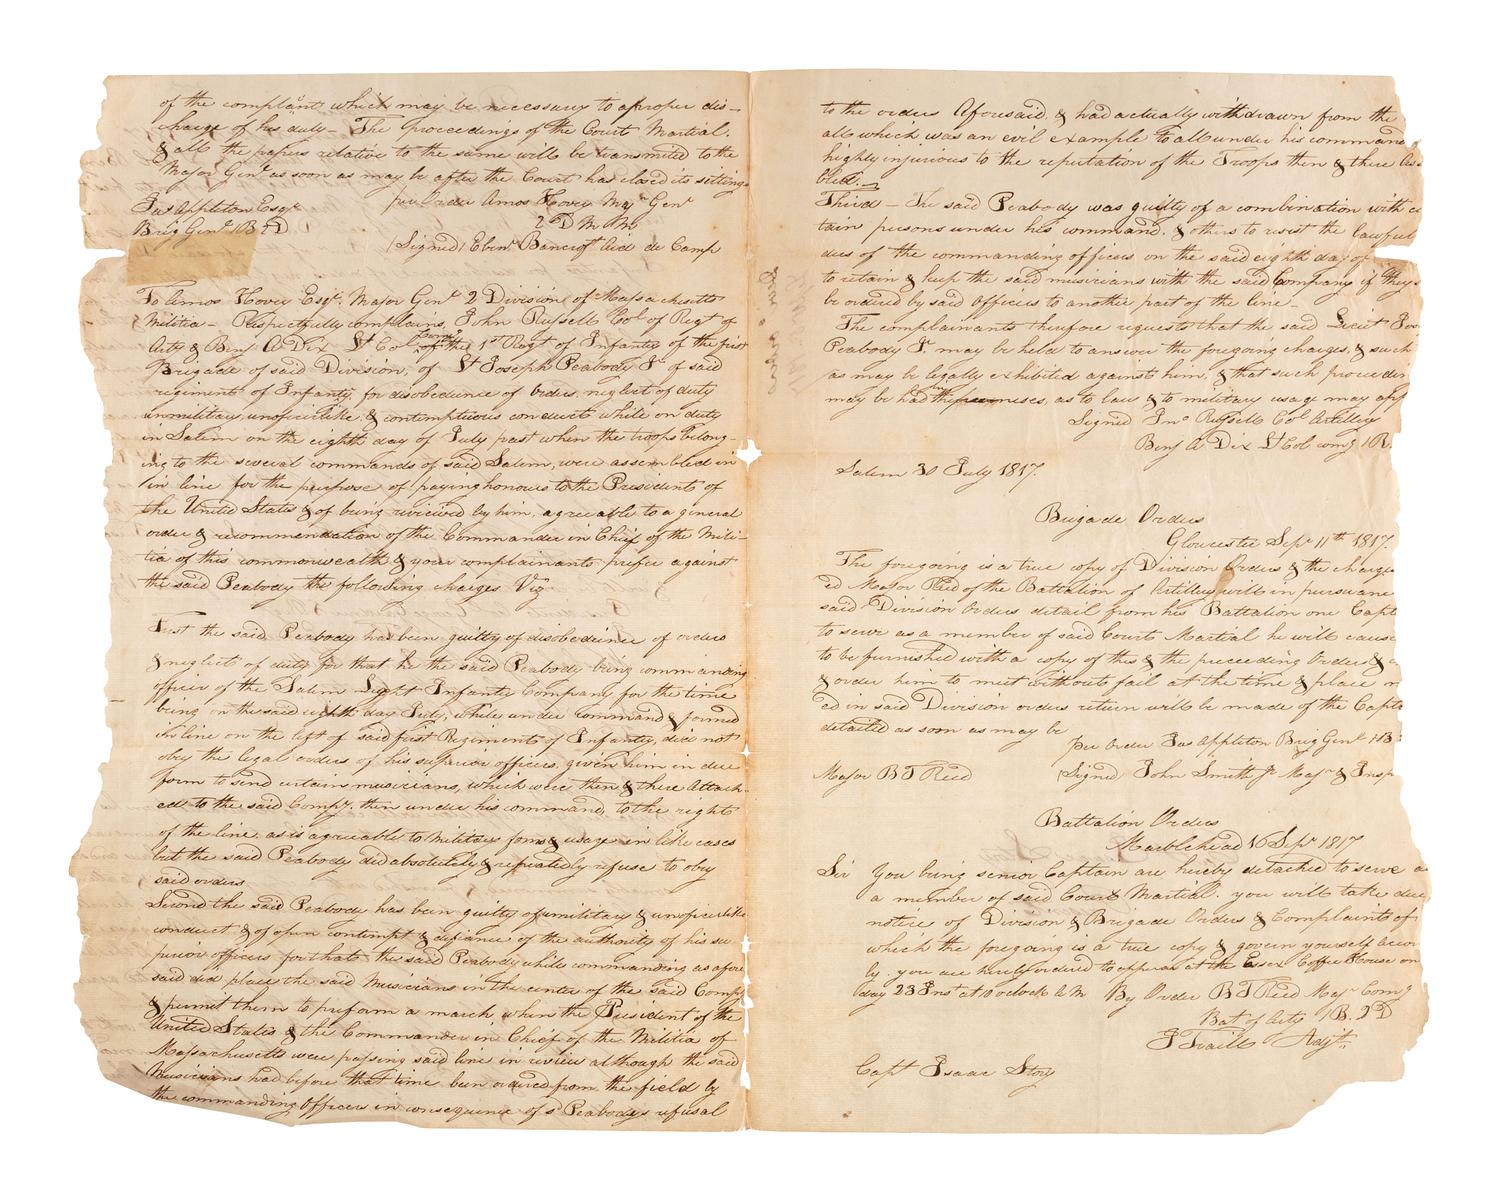 of the complaint which may be necessary to a proper dis-
charge of his duty – The proceedings of the Court Martial.
& all the papers relative to the same will be transmitted to the
Major Genl. as soon as may be after the Court has closed its sittings
per Order Amos Hovey Majr Genl
Jas Appleton Esqr
2 D M M
Brig Genl 1 B 2 D
(Signed) Ebenr Bancroft Aid de Camp
To Amos Hovey Esqr. Major Genl 2 Division of Massachusetts
Militia – Respectfully complains, John Russell Col. of Regt of
Arty & Benj A Dix Lt Col of the 1st Regt of Infantry of the first
Brigade of said Division, of Lt Joseph Peabody Jr of said
regiment of Infantry, for disobedience of orders, neglect of duty
unmilitary, unofficerlike & contemptuous conduct while on duty
in Salem on the eighth day of July past when the troops belong-
ing to the several commands of said Salem, were assembled in
in line for the purpose of paying honours to the President of
the United States & of being reviewed by him, agreeable to a general
order & recommendation of the Commander in Chief of the Mili-
tia of this commonwealth & your complainants prefer against
the said Peabody the following charges Viz
First the said Peabody has been guilty of disobedience of orders
& neglect of duty for that he the said Peabody being commanding
officer of the Salem Light Infantry Company for the time
being on the said eighth day July, while under command & formed
in line on the left of said first Regiment of Infantry, did not
obey the legal orders of his superior officers, given him in due
form to send certain musicians, which were then & there attach-
ed to the said Compy. then under his command, to the right
of the line, as is agreeable to military forms & usage in like cases
but the said Peabody did absolutely & repeatedly refuse to obey
said orders
Second the said Peabody has been guilty of unmilitary & unofficerlike
conduct & of open contempt & defiance of the authority of his su
perior officers for that the said Peabody while commanding as afore
said did place the said Musicians in the center of the said Compy
& permit them to perform a march when the President of the
United States & the Commander in Chief of the Militia of
Massachusetts were passing said line in review although the said
Musicians had before that time been ordered from the field by
the commanding Officers in consequence of sd Peabodys refusal
to the orders Aforesaid & had actually withdrawn from the
all which was an evil example to all under his command
highly injurious to the reputation of the Troops then & there Ass
bled.
Third – The said Peabody was guilty of a combination with ce
tain persons under his command, & others to resist the lawful
ders of the commanding officers on the said eighth day of
to retain & keep the said musicians with the said Company if they
be ordered by said Officers to another part of the line –
The complainants therefore requests that the said Lieut Jos
Peabody Jr. may be held to answer the foregoing charges, & such
as may be legally exhibited against him, & that such proceedin
may be had in the premises, as to law & to military usage may app
Signed Jno Russell Col Artillery
Benj A Dix Lt Col comg 1 R
Salem 30 July 1817.
Brigade Orders
Gloucester Sepr 11th 1817.
The foregoing is a true copy of Division Orders & the charge
ed Major Reed of the Battalion of Artillery will in pursuanc
said Division Orders detail from his Battalion one Capt
to serve as a member of said Court Martial he will cause
to be furnished with a copy of this & the preceeding Orders &
& order him to meet without fail at the time & place n
ed in said Division orders return will be made of the Capta
detailed as soon as may be
per Order Jas Appleton Brig Genl 1 B
Major B T Reed
Signed John Smith Jr Majr & Insp
Battalion Orders
Marblehead 16 Sepr 1817
Sir You being senior Captain are hereby detached to serve a
a member of said Court Martial. you will take due
notice of Division & Brigade Orders & Complaints of
which the foregoing is a true copy & govern yourself accor
ly. you are hereby ordered to appear at the Essex Coffee House on
day 23 Inst at 10 oclock A M By Order B T Reed Majr Comg
Bat of Arty 1 B. 2 D
J Traill Adjt.
Capt Isaac Story